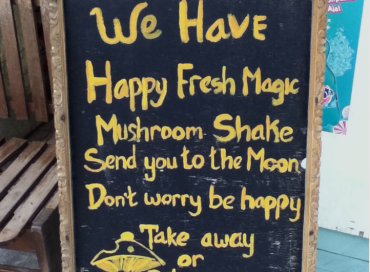 We Have
Happy Fresh Magic
Mushroom Shake
Send you to the Moon
Don't worry be happy
Take away
or